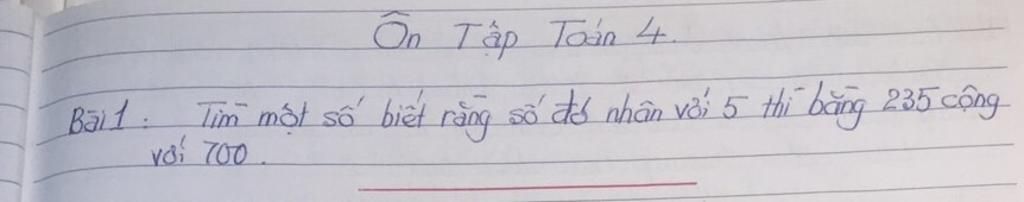 Ôn Tập Toán 4.
Bài 1: Tìm một số biết rằng số đó nhân với 5 thì bằng 235 cộng
với 700.